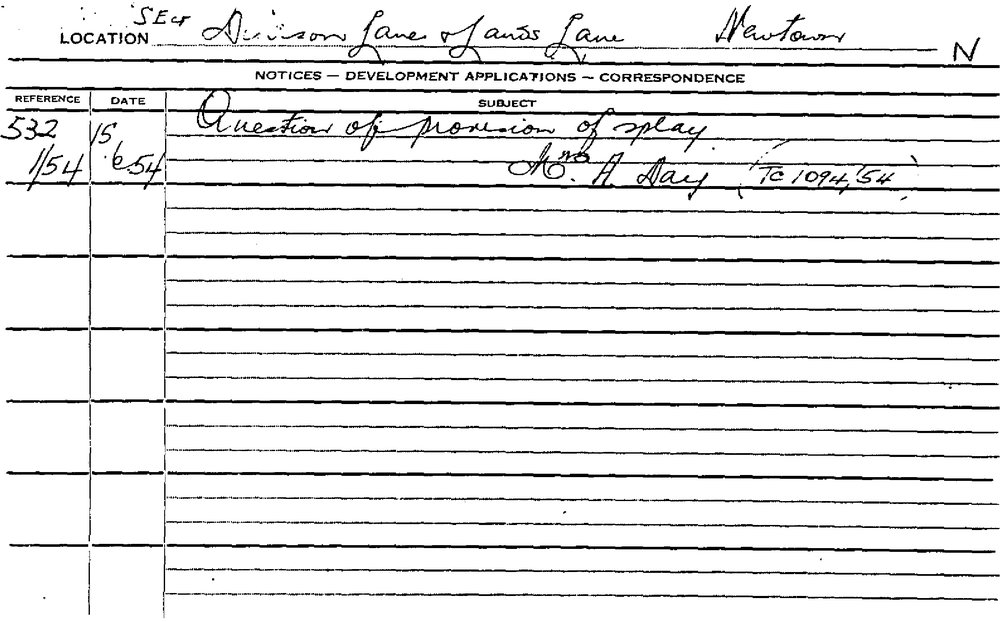 SEcr
LOCATION Division Lane & Lane Newtown N
NOTICES — DEVELOPMENT APPLICATIONS — CORRESPONDENCE
REFERENCE DATE SUBJECT
532 15 Question of provision of splay.
1/54 6.54 Mrs. A Day (TC 1094/54)